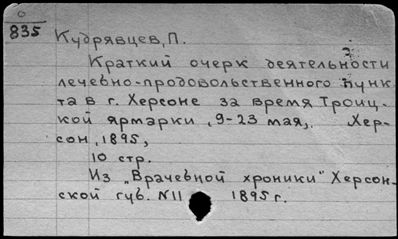 0
835
Кудрявцев, П.
Краткий очерк деятельности
лечебно-продовольственного пунк
та в г. Херсоне за время Троиц-
кой ярмарки, 9-23 мая,. Хер-
сон, 1895,
10 стр.
Из „Врачебной хроники" Херсон-
ской губ. №11 1895 г.